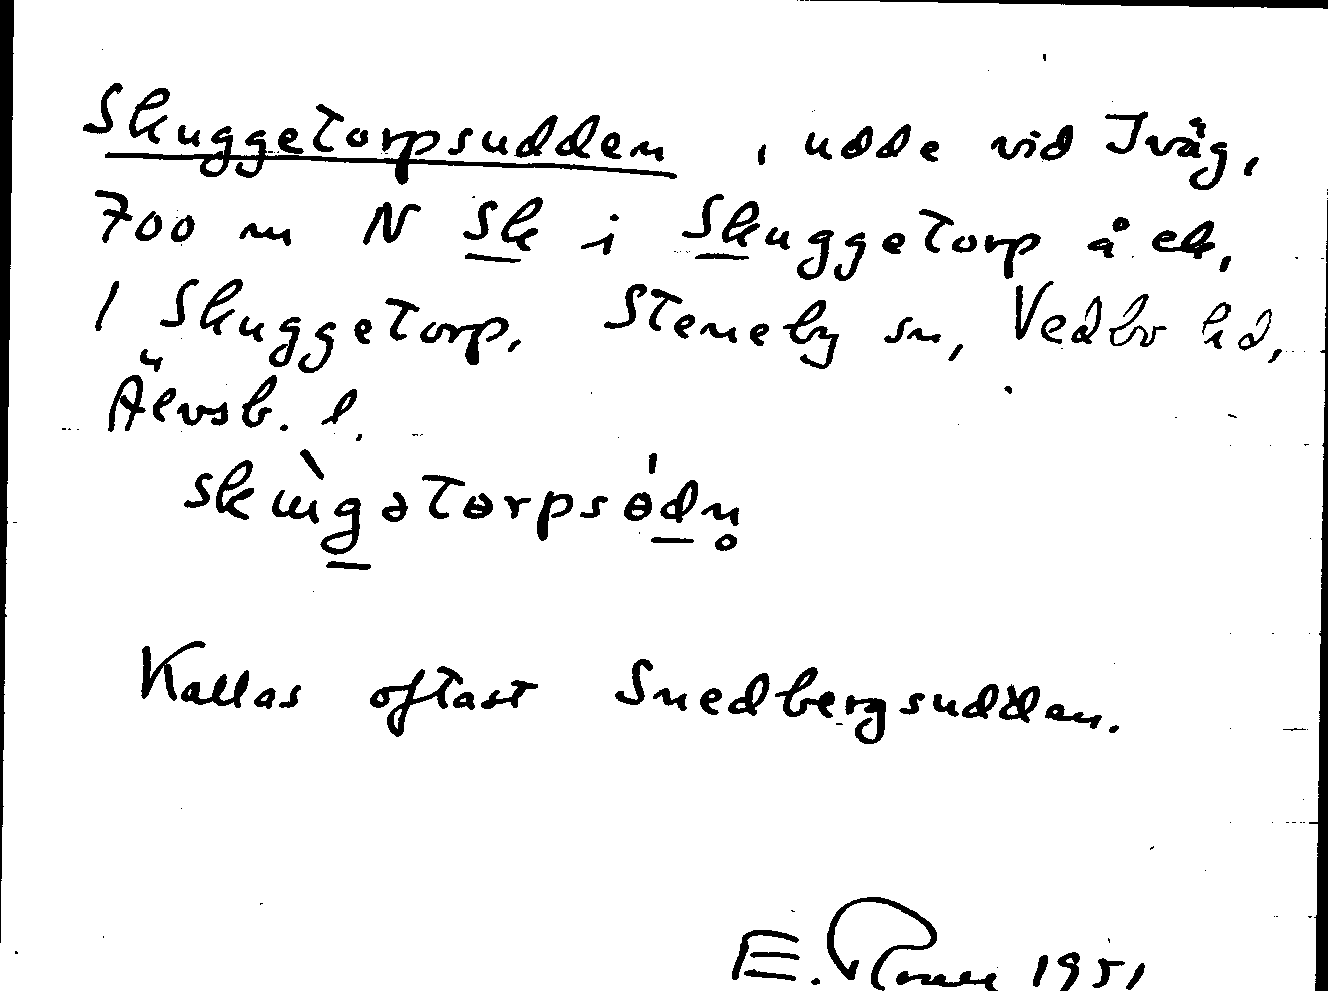 Skuggetorpsudden, udde vid Iväg,
700 m N Sk i Skuggetorp å ek,
1 Skuggetorp, Steneby sn, Vedbo hd,
Älvsb. l.
Kallas oftast Snedbergsudden.
E. 1951